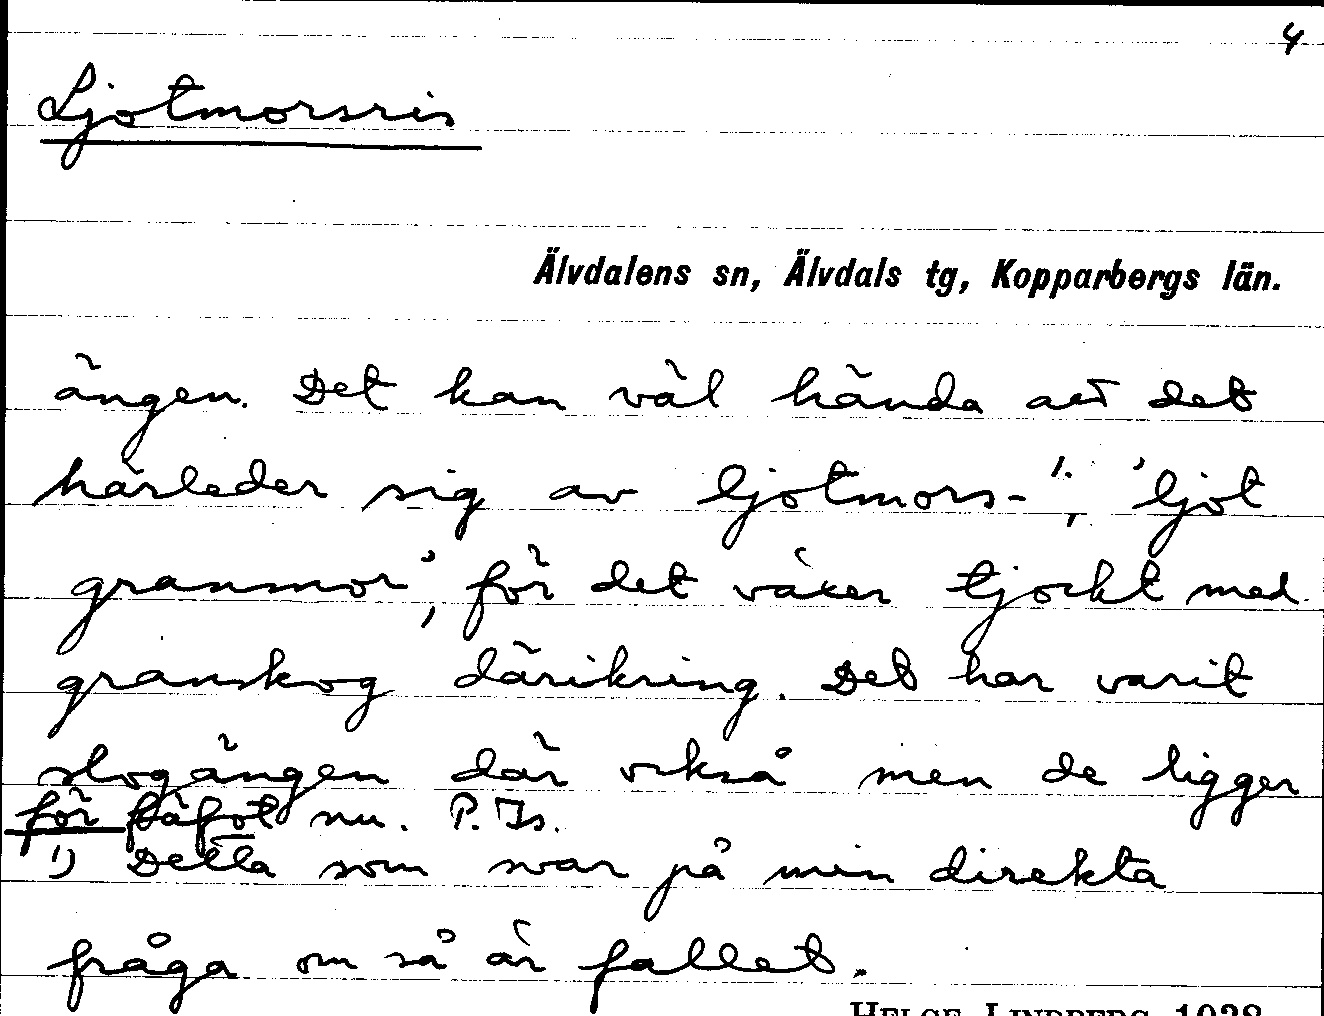 4
Ljotmorsris
Älvdalens sn, Älvdals tg, Kopparbergs län.
ängen. Det kan väl hända att det
härleder sig av ljotmors- ¹⁾, 'ljot
granmor', för det växer tjockt med
granskog därikring. Det har varit
slogängen där också men de ligger
för fäfot nu. P. Is.
¹⁾ Detta som svar på min direkta
fråga om så är fallet.
HELGE LINDBERG 1938